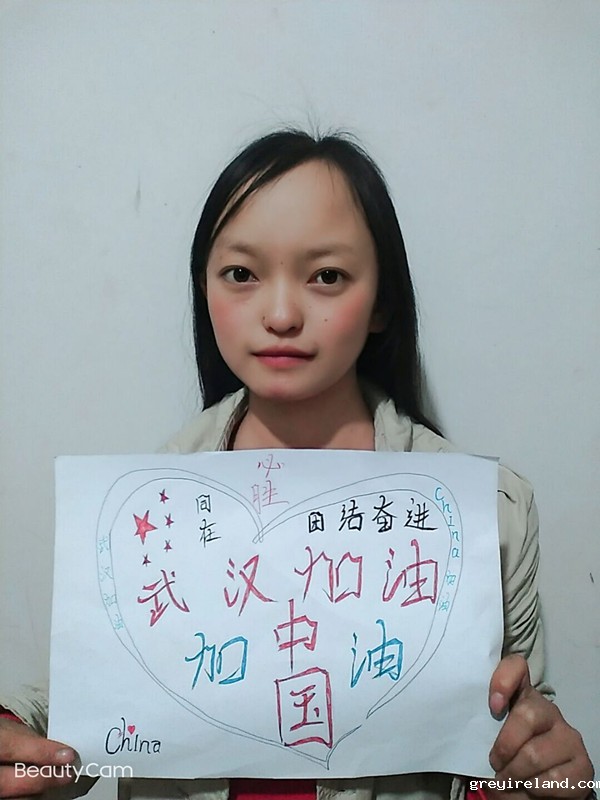 必胜
同在
团结奋进
China
武汉加油
武汉加油
加油
中国
China
BeautyCam
greyireland.com